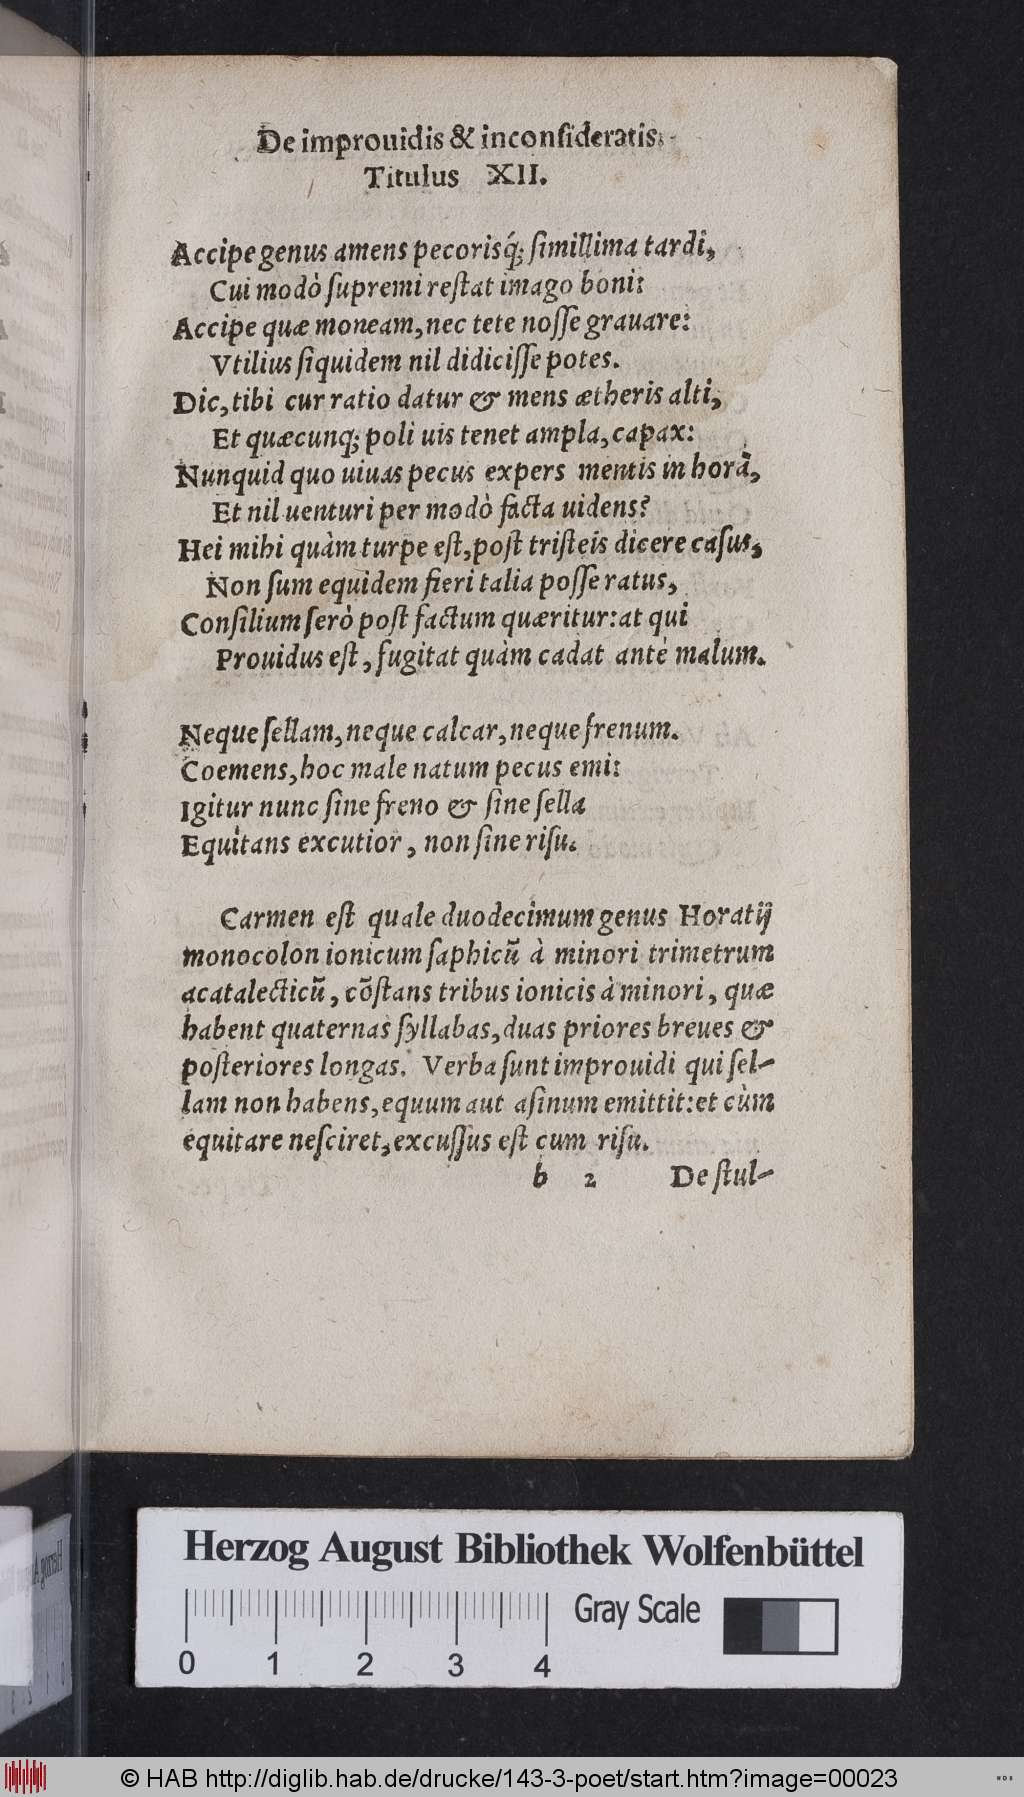 De improuidis & inconsideratis.
Titulus XII.
Accipe genus amens pecorisq́; simillima tardi,
Cui modò supremi restat imago boni:
Accipe quæ moneam, nec tete nosse grauare:
Vtilius siquidem nil didicisse potes.
Dic, tibi cur ratio datur & mens ætheris alti,
Et quæcunq; poli uis tenet ampla, capax:
Nunquid quo uiuas pecus expers mentis in horā,
Et nil uenturi per modò facta uidens?
Hei mihi quàm turpe est, post tristeis dicere casus,
Non sum equidem fieri talia posse ratus,
Consilium serò post factum quæritur: at qui
Prouidus est, fugitat quàm cadat antè malum.
Neque sellam, neque calcar, neque frenum.
Coemens, hoc male natum pecus emi:
Igitur nunc sine freno & sine sella
Equitans excutior, non sine risu.
Carmen est quale duodecimum genus Horatij
monocolon ionicum saphicū à minori trimetrum
acatalecticū, cōstans tribus ionicis à minori, quæ
habent quaternas syllabas, duas priores breues &
posteriores longas. Verba sunt improuidi qui sel-
lam non habens, equum aut asinum emittit: et cùm
equitare nesciret, excussus est cum risu.
b 2 De stul-
Herzog August Bibliothek Wolfenbüttel
Gray Scale
0 1 2 3 4
© HAB http://diglib.hab.de/drucke/143-3-poet/start.htm?image=00023